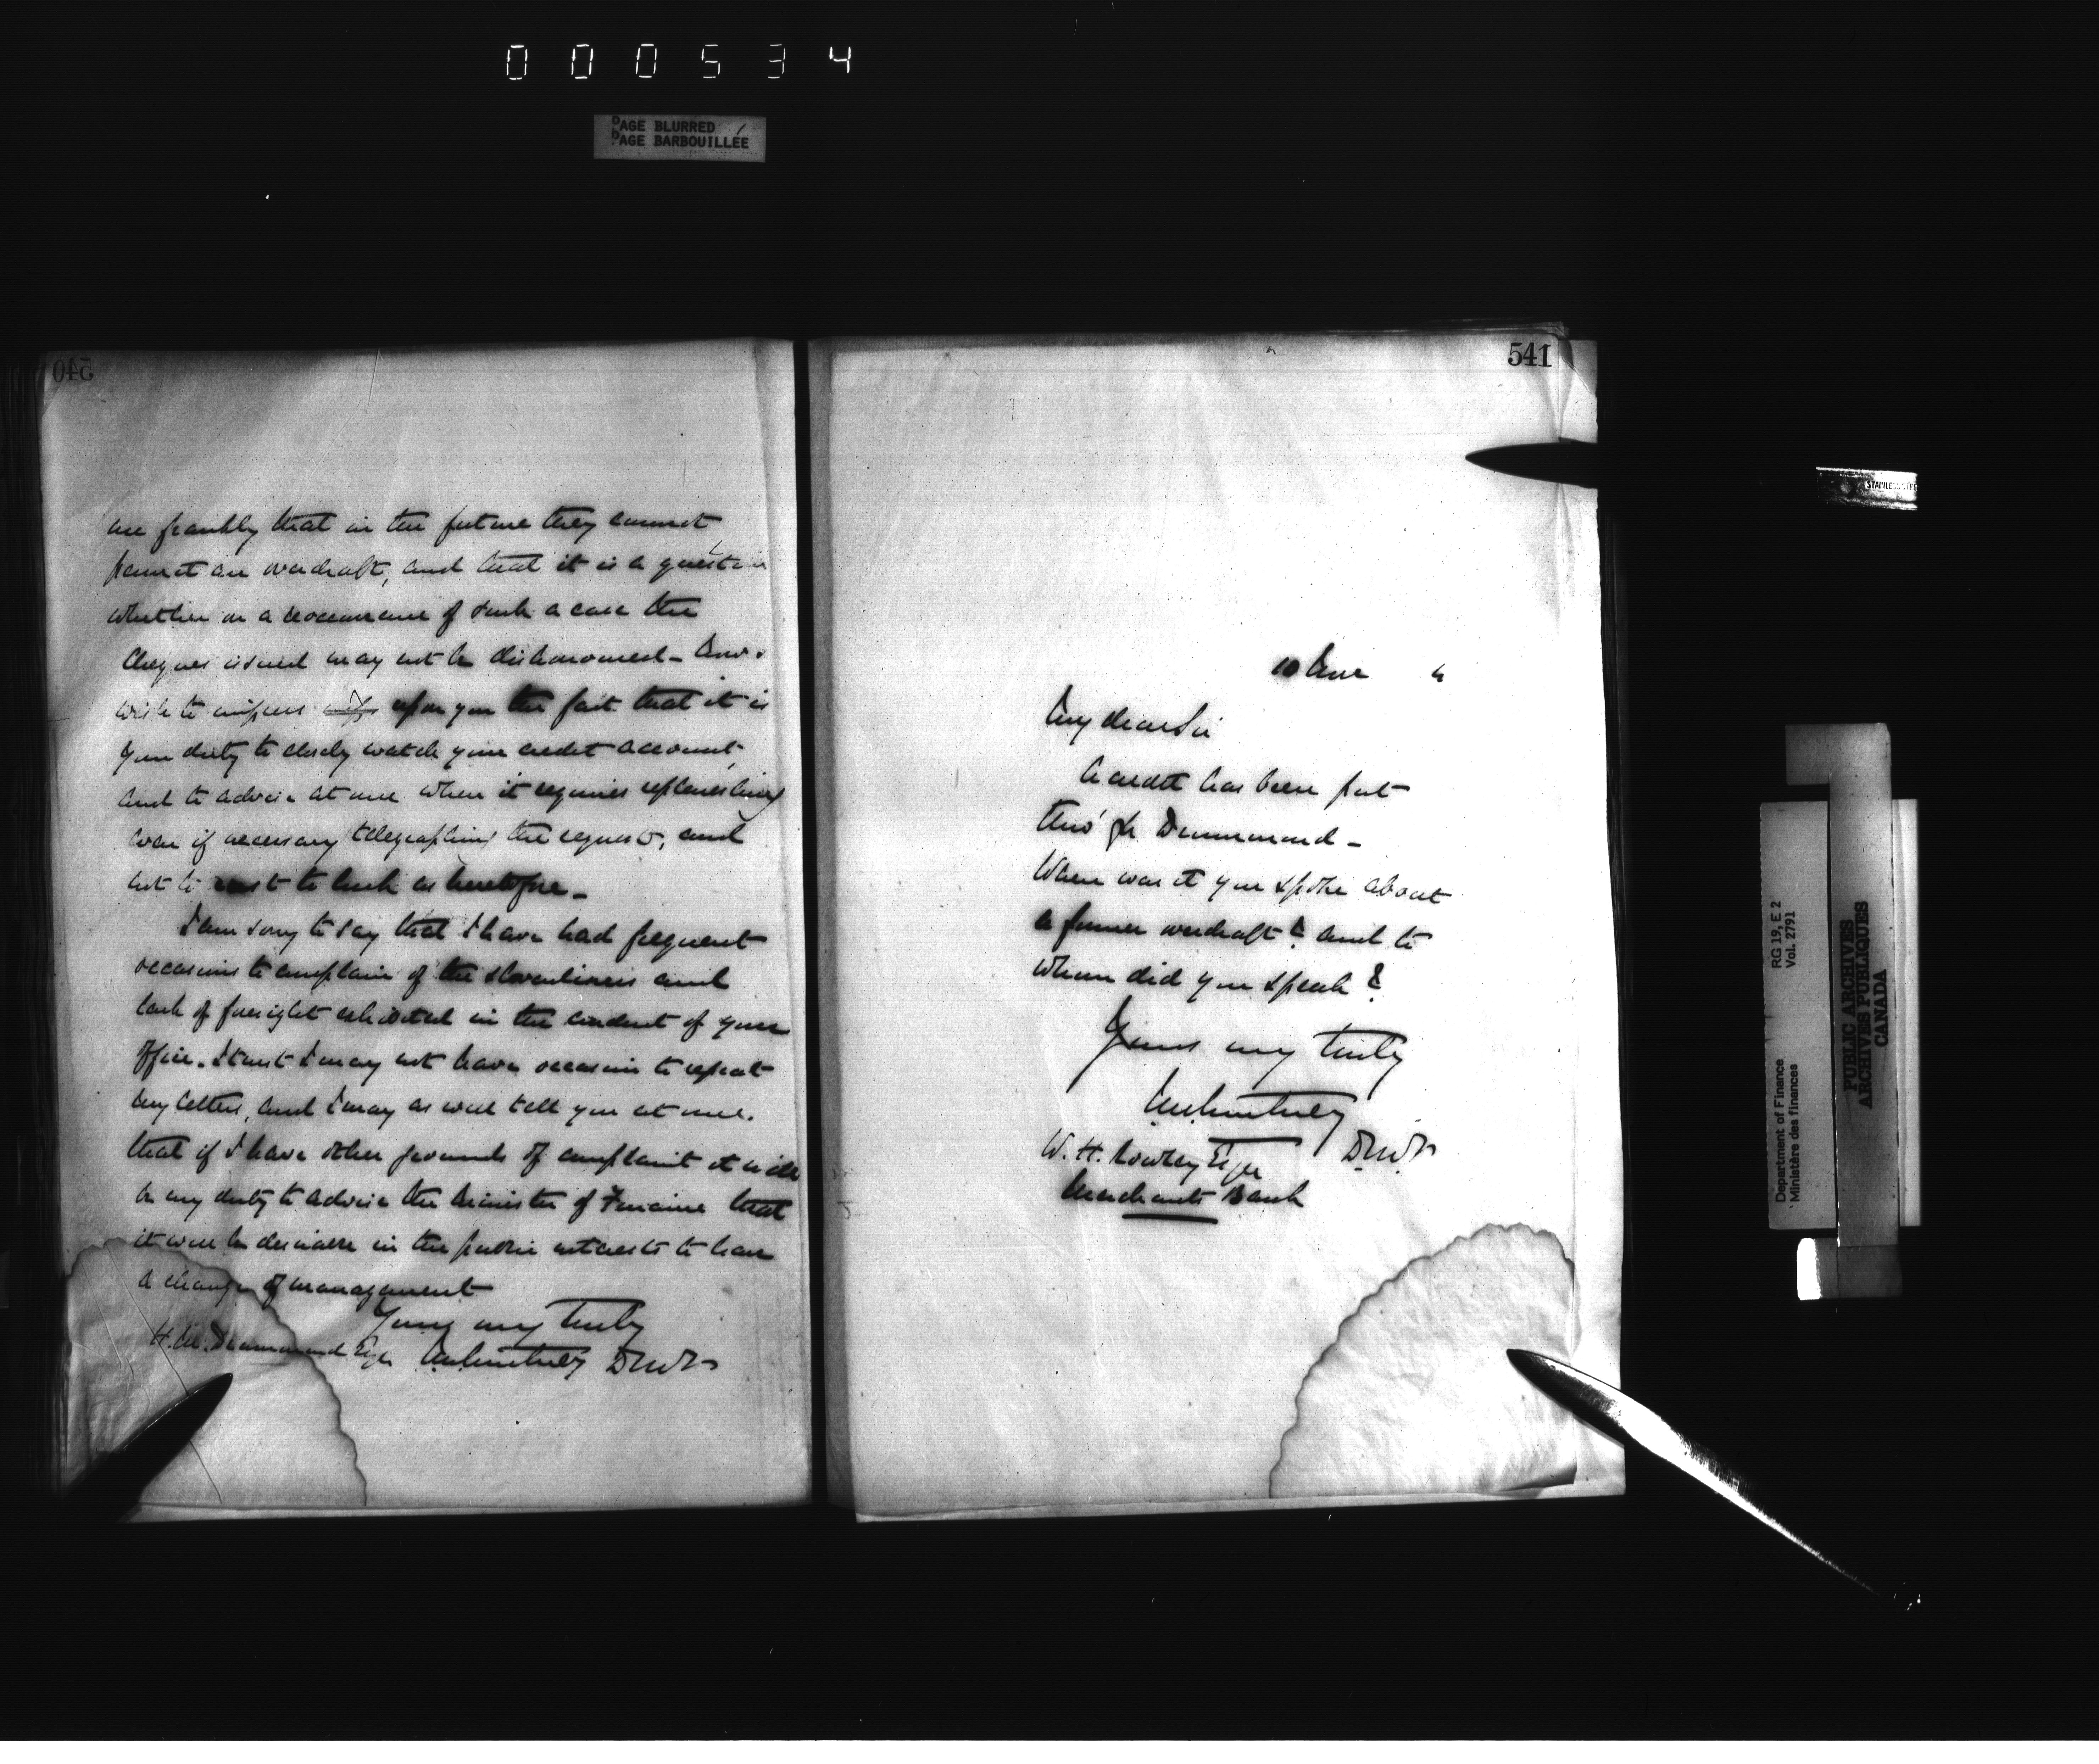 000534
PAGE BLURRED
PAGE BARBOUILLÉE
540
me frankly that in the future they cannot
permit an overdraft, and that it is a question
whether on a reoccurrence of such a case the
cheques issued may not be dishonoured -
wish to impress upon you the fact that it is
your duty to closely watch your credit account,
and to advise at once when it requires replenishing
even if necessary telegraphing the request, and
not to to luck as heretofore -
I am sorry to say that I have had frequent
occasions to complain of the slovenliness and
lack of foresight exhibited in the conduct of your
office. I trust I may not have occasion to repeat
my letter, and I may as well tell you at once.
that if I have other grounds of complaint it will
be my duty to advise the Minister of Finance that
it will be desirable in the public interests to have
a change of management
Yours very truly
H. M. Drummond Esqr JMCourtney DMF
541
10 June
My dear Sir
A credit has been put
thro' for Drummond -
When was it you spoke about
a former overdraft? and to
whom did you speak?
Yours very truly
JMCourtney
DMF
W. H. Rowley Esqr
Merchants Bank
STAINLESS STEEL
RG 19, E 2
Vol. 2791
Department of Finance
Ministère des finances
PUBLIC ARCHIVES
ARCHIVES PUBLIQUES
CANADA